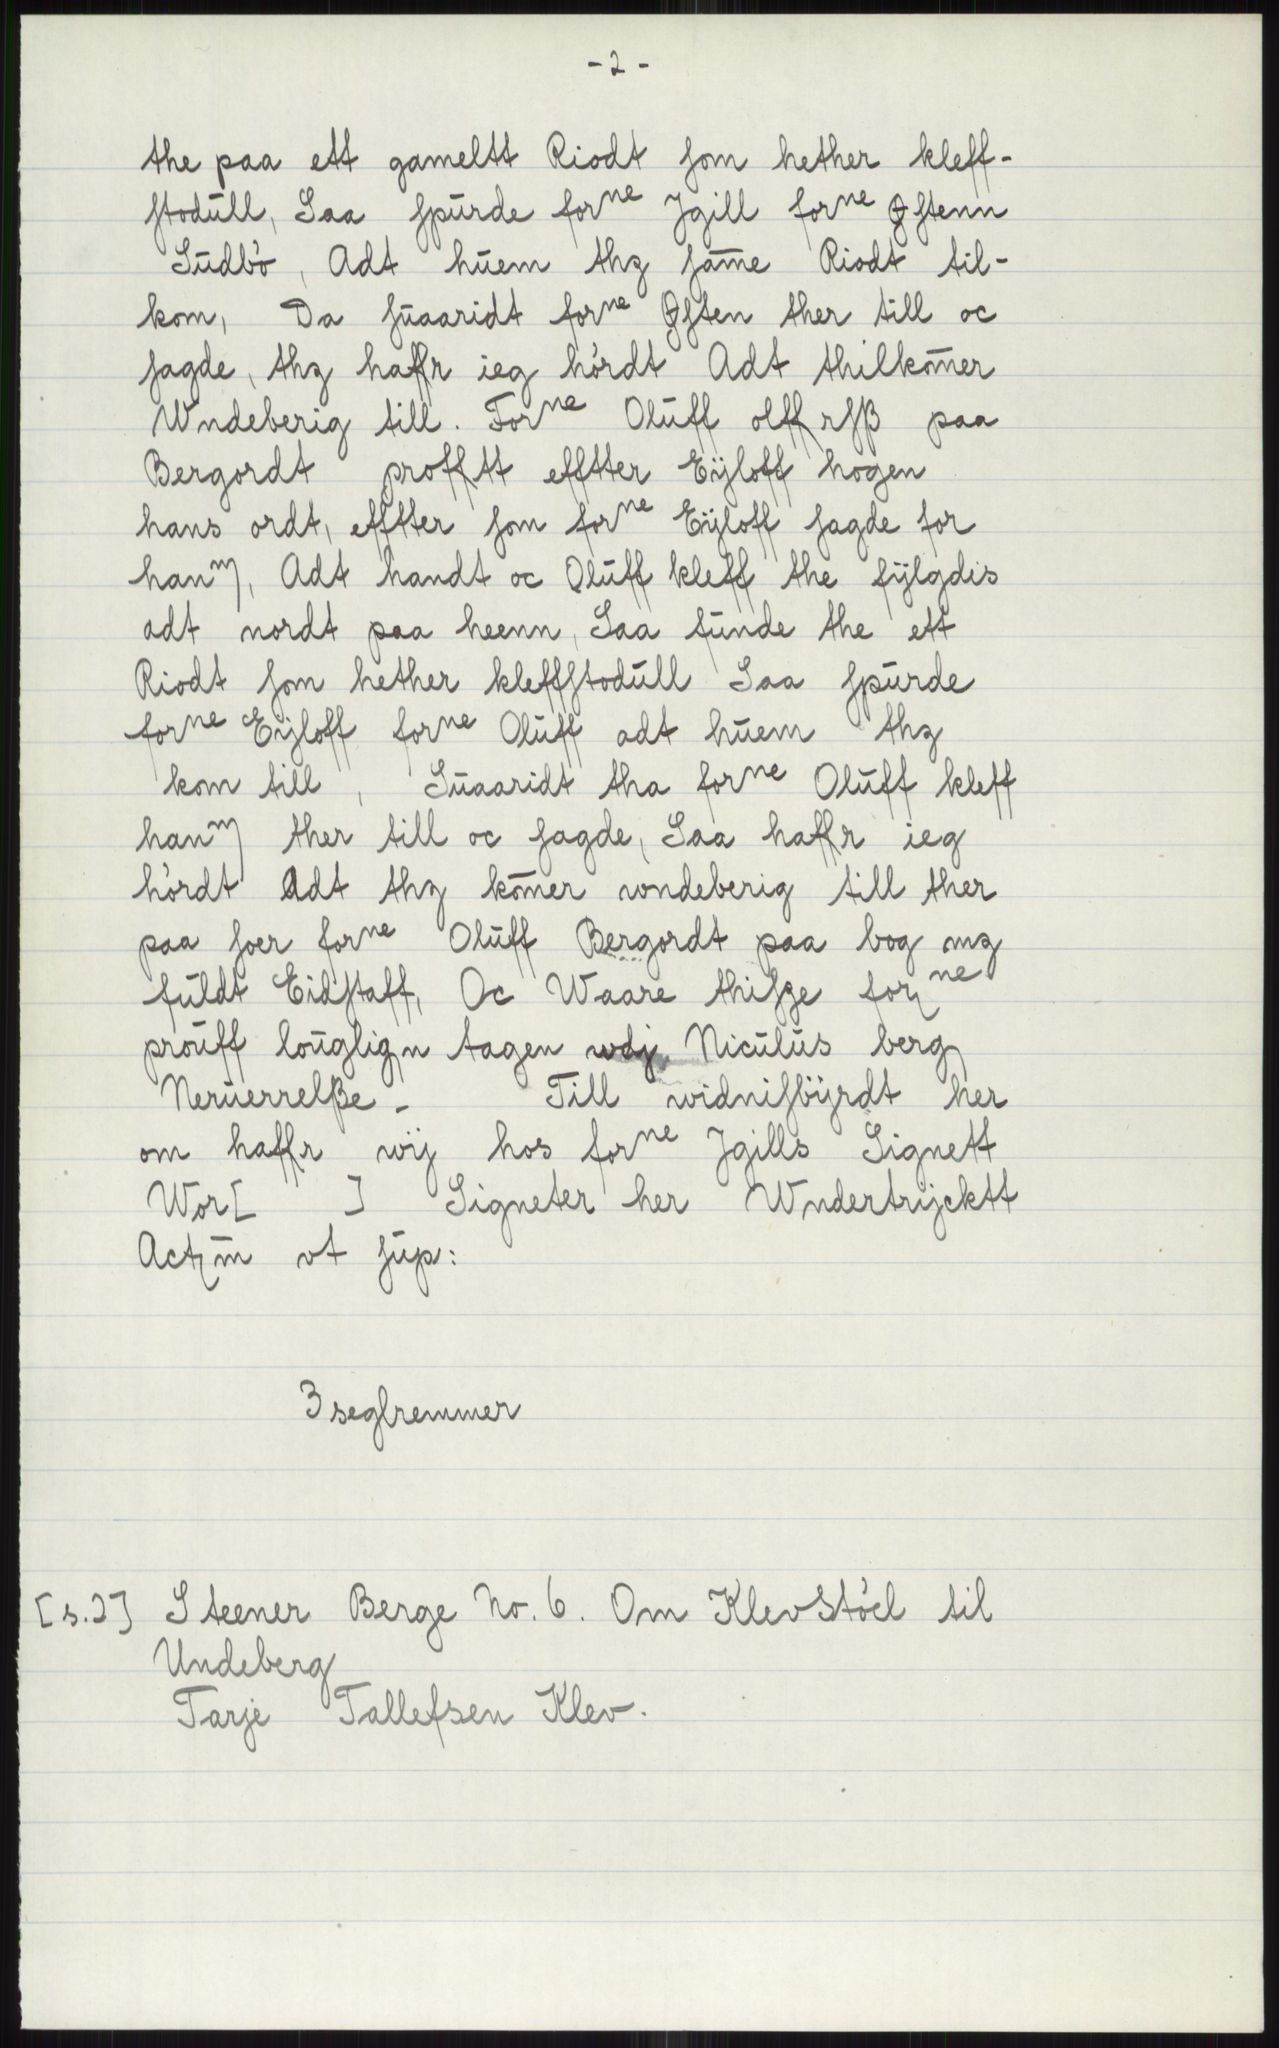 - 2 -
the paa ett gameltt Riodt ſom hether kleff-
ſtodūll, Saa ſpūrde forⁿᵉ Jgill forⁿᵉ Øſtenn
Sūdbó, Adt hūem thꝫ ſam̄e Riodt til-
kom, Da ſūaaridt forⁿᵉ Øſten ther till oc
ſagde, thꝫ haffr ieg hórdt Adt thilkom̄er
Wndeberig till. Forⁿᵉ Olūff olffrſß paa
Bergordt profftt efftter Eÿloff hogen
hans ordt, efftter ſom forⁿᵉ Eÿloff ſagde for
hanᵐ, Adt handt oc Olūff kleff the fÿlgdis
adt nordt paa heenn, Saa funde the ett
Riodt ſom hether kleffſtodūll Saa ſpūrde
forⁿᵉ Eÿloff forⁿᵉ Olūff adt hūem thꝫ
kom till, Sūaaridt tha forⁿᵉ Olūff kleff
hanᵐ ther till oc ſagde, Saa haffr ieg
hórdt Adt thꝫ kom̄er vondeberig till ther
paa ſoer forⁿᵉ Olūff Bergordt paa bog mꝫ
fūldt Eidſtaff, Oc Waare thiſſe forⁿᵉ
proūff loūglign tagen wdj Nicūlūs berg
Nerūerrelße - Till widniſbÿrdt her
om haffr wÿ hos forⁿᵉ Jgills Signett
Wor[ ] Signeter her Wndertrÿcktt
Actm̄ vt ſūp:
3 seglremmer
[s.2] Steener Berge No. 6. Om Klevstóel til
Undeberg
Tarje Tallefsen Klev.